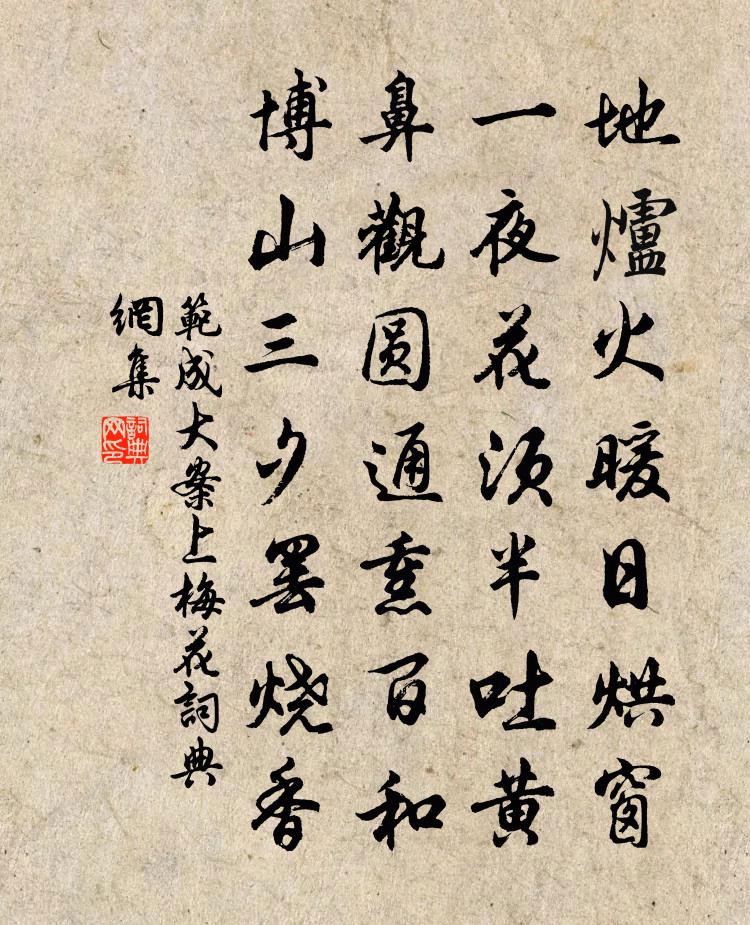 地爐火暖日烘窗
一夜花須半吐黄
鼻觀圆通熏百和
博山三夕罢燒香
範成大案上梅花詞典
網集
詞典
网印